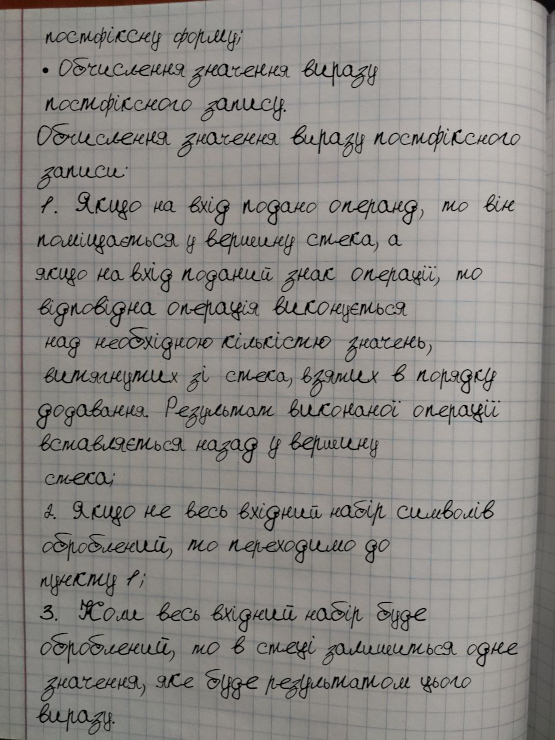 постфіксну форму;
• Обчислення значення виразу
постфіксного запису.
Обчислення значення виразу постфіксного
записи:
1. Якщо на вхід подано операнд, то він
поміщається у вершину стека, а
якщо на вхід поданий знак операції, то
відповідна операція виконується
над необхідною кількістю значень,
витягнутих зі стека, взятих в порядку
додавання. Результат виконаної операції
вставляється назад у вершину
стека;
2. Якщо не весь вхідний набір символів
оброблений, то переходимо до
пункту 1;
3. Коли весь вхідний набір буде
оброблений, то в стеці залишиться одне
значення, яке буде результатом цього
виразу.